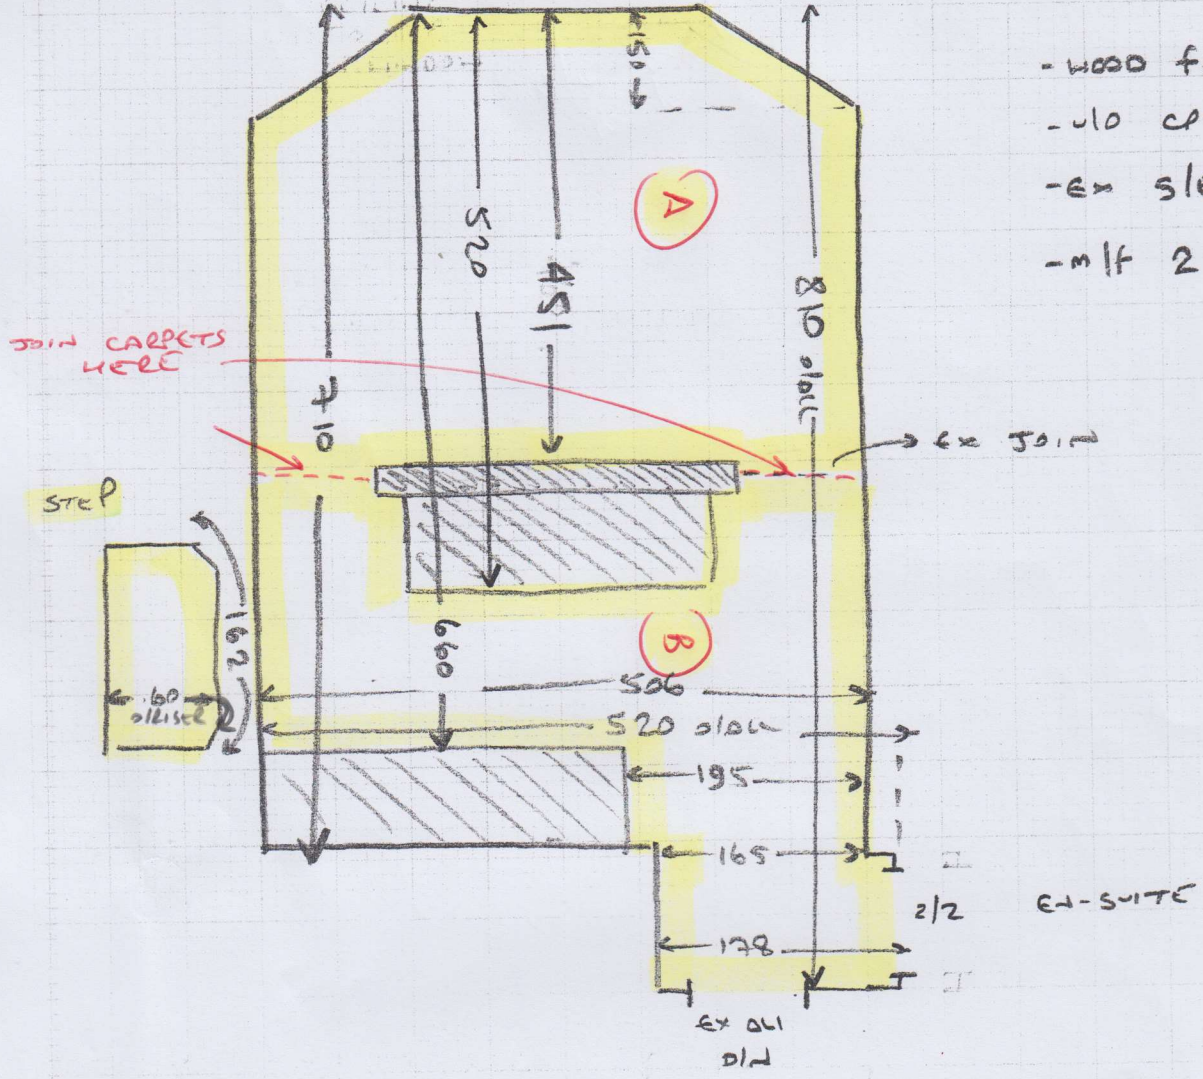 - WOOD f
- U/O CP
- EX S/E
- M/F 2
150
A
520
451
810 o/all
JOIN CARPETS
HERE
710
EX JOIN
STEP
162
60
o/RISER
660
B
506
520 o/all
195
165
2/2 EN-SUITE
178
EX ALI
D/N